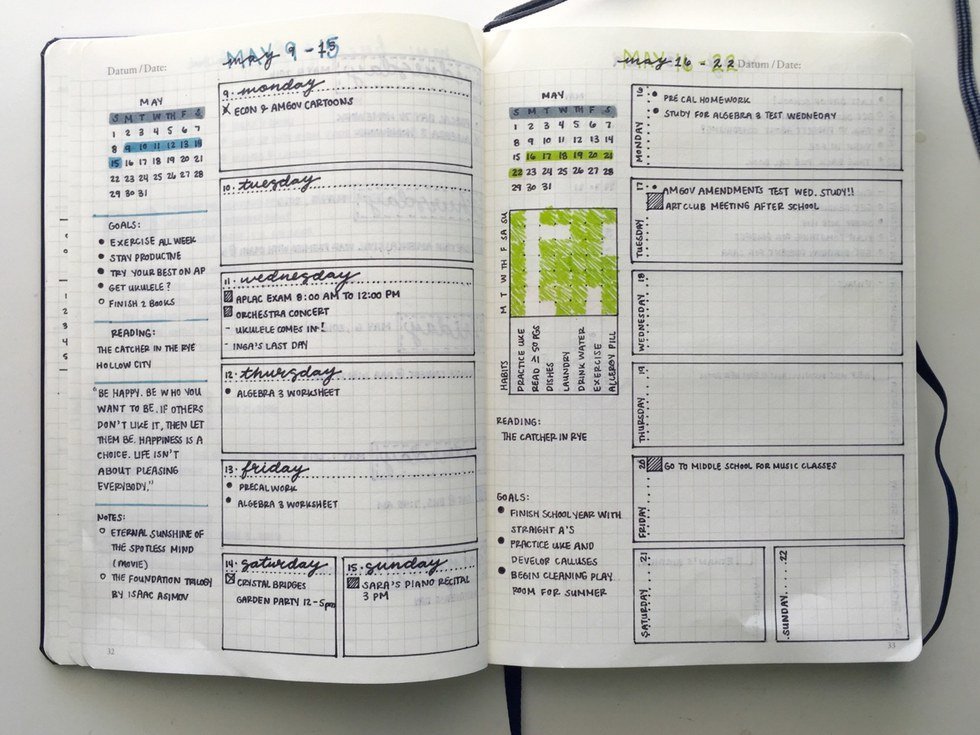 Datum / Date:
MAY 9 - 15
may 9 - 15
MAY
S M T W TH F S
1 2 3 4 5 6 7
8 9 10 11 12 13 14
15 16 17 18 19 20 21
22 23 24 25 26 27 28
29 30 31
GOALS:
EXERCISE ALL WEEK
STAY PRODUCTIVE
TRY YOUR BEST ON AP
GET UKULELE?
FINISH 2 BOOKS
READING:
THE CATCHER IN THE RYE
HOLLOW CITY
"BE HAPPY. BE WHO YOU
WANT TO BE. IF OTHERS
DON'T LIKE IT, THEN LET
THEM BE. HAPPINESS IS A
CHOICE. LIFE ISN'T
ABOUT PLEASING
EVERYBODY."
NOTES:
ETERNAL SUNSHINE OF
THE SPOTLESS MIND
(MOVIE)
THE FOUNDATION TRILOGY
BY ISAAC ASIMOV
32
9. monday
x ECON & AMGOV CARTOONS
10. tuesday
11. wednesday
APLAC EXAM 8:00 AM TO 12:00 PM
ORCHESTRA CONCERT
- UKULELE COMES IN!
- INGA'S LAST DAY
12. thursday
ALGEBRA 3 WORKSHEET
13. friday
PRECAL WORK
ALGEBRA 3 WORKSHEET
14. saturday
CRYSTAL BRIDGES
GARDEN PARTY 12-5pm
15. sunday
SARA'S PIANO RECITAL
3 PM
MAY 16 - 22
may 16 - 22
Datum / Date:
MAY
S M T W TH F S
1 2 3 4 5 6 7
8 9 10 11 12 13 14
15 16 17 18 19 20 21
22 23 24 25 26 27 28
29 30 31
M T W TH F SA SU
HABITS
PRACTICE UKE
READ 50 PGS
DISHES
LAUNDRY
DRINK WATER
EXERCISE
ALLERGY PILL
READING:
THE CATCHER IN RYE
GOALS:
FINISH SCHOOL YEAR WITH
STRAIGHT A'S
PRACTICE UKE AND
DEVELOP CALLUSES
BEGIN CLEANING PLAY
ROOM FOR SUMMER
MONDAY 16
PRE CAL HOMEWORK
STUDY FOR ALGEBRA 3 TEST WEDNEDAY
TUESDAY 17
AMGOV AMENDMENTS TEST WED. STUDY!!
ART CLUB MEETING AFTER SCHOOL
WEDNESDAY 18
THURSDAY 19
FRIDAY 20
GO TO MIDDLE SCHOOL FOR MUSIC CLASSES
SATURDAY 21
SUNDAY 22
33